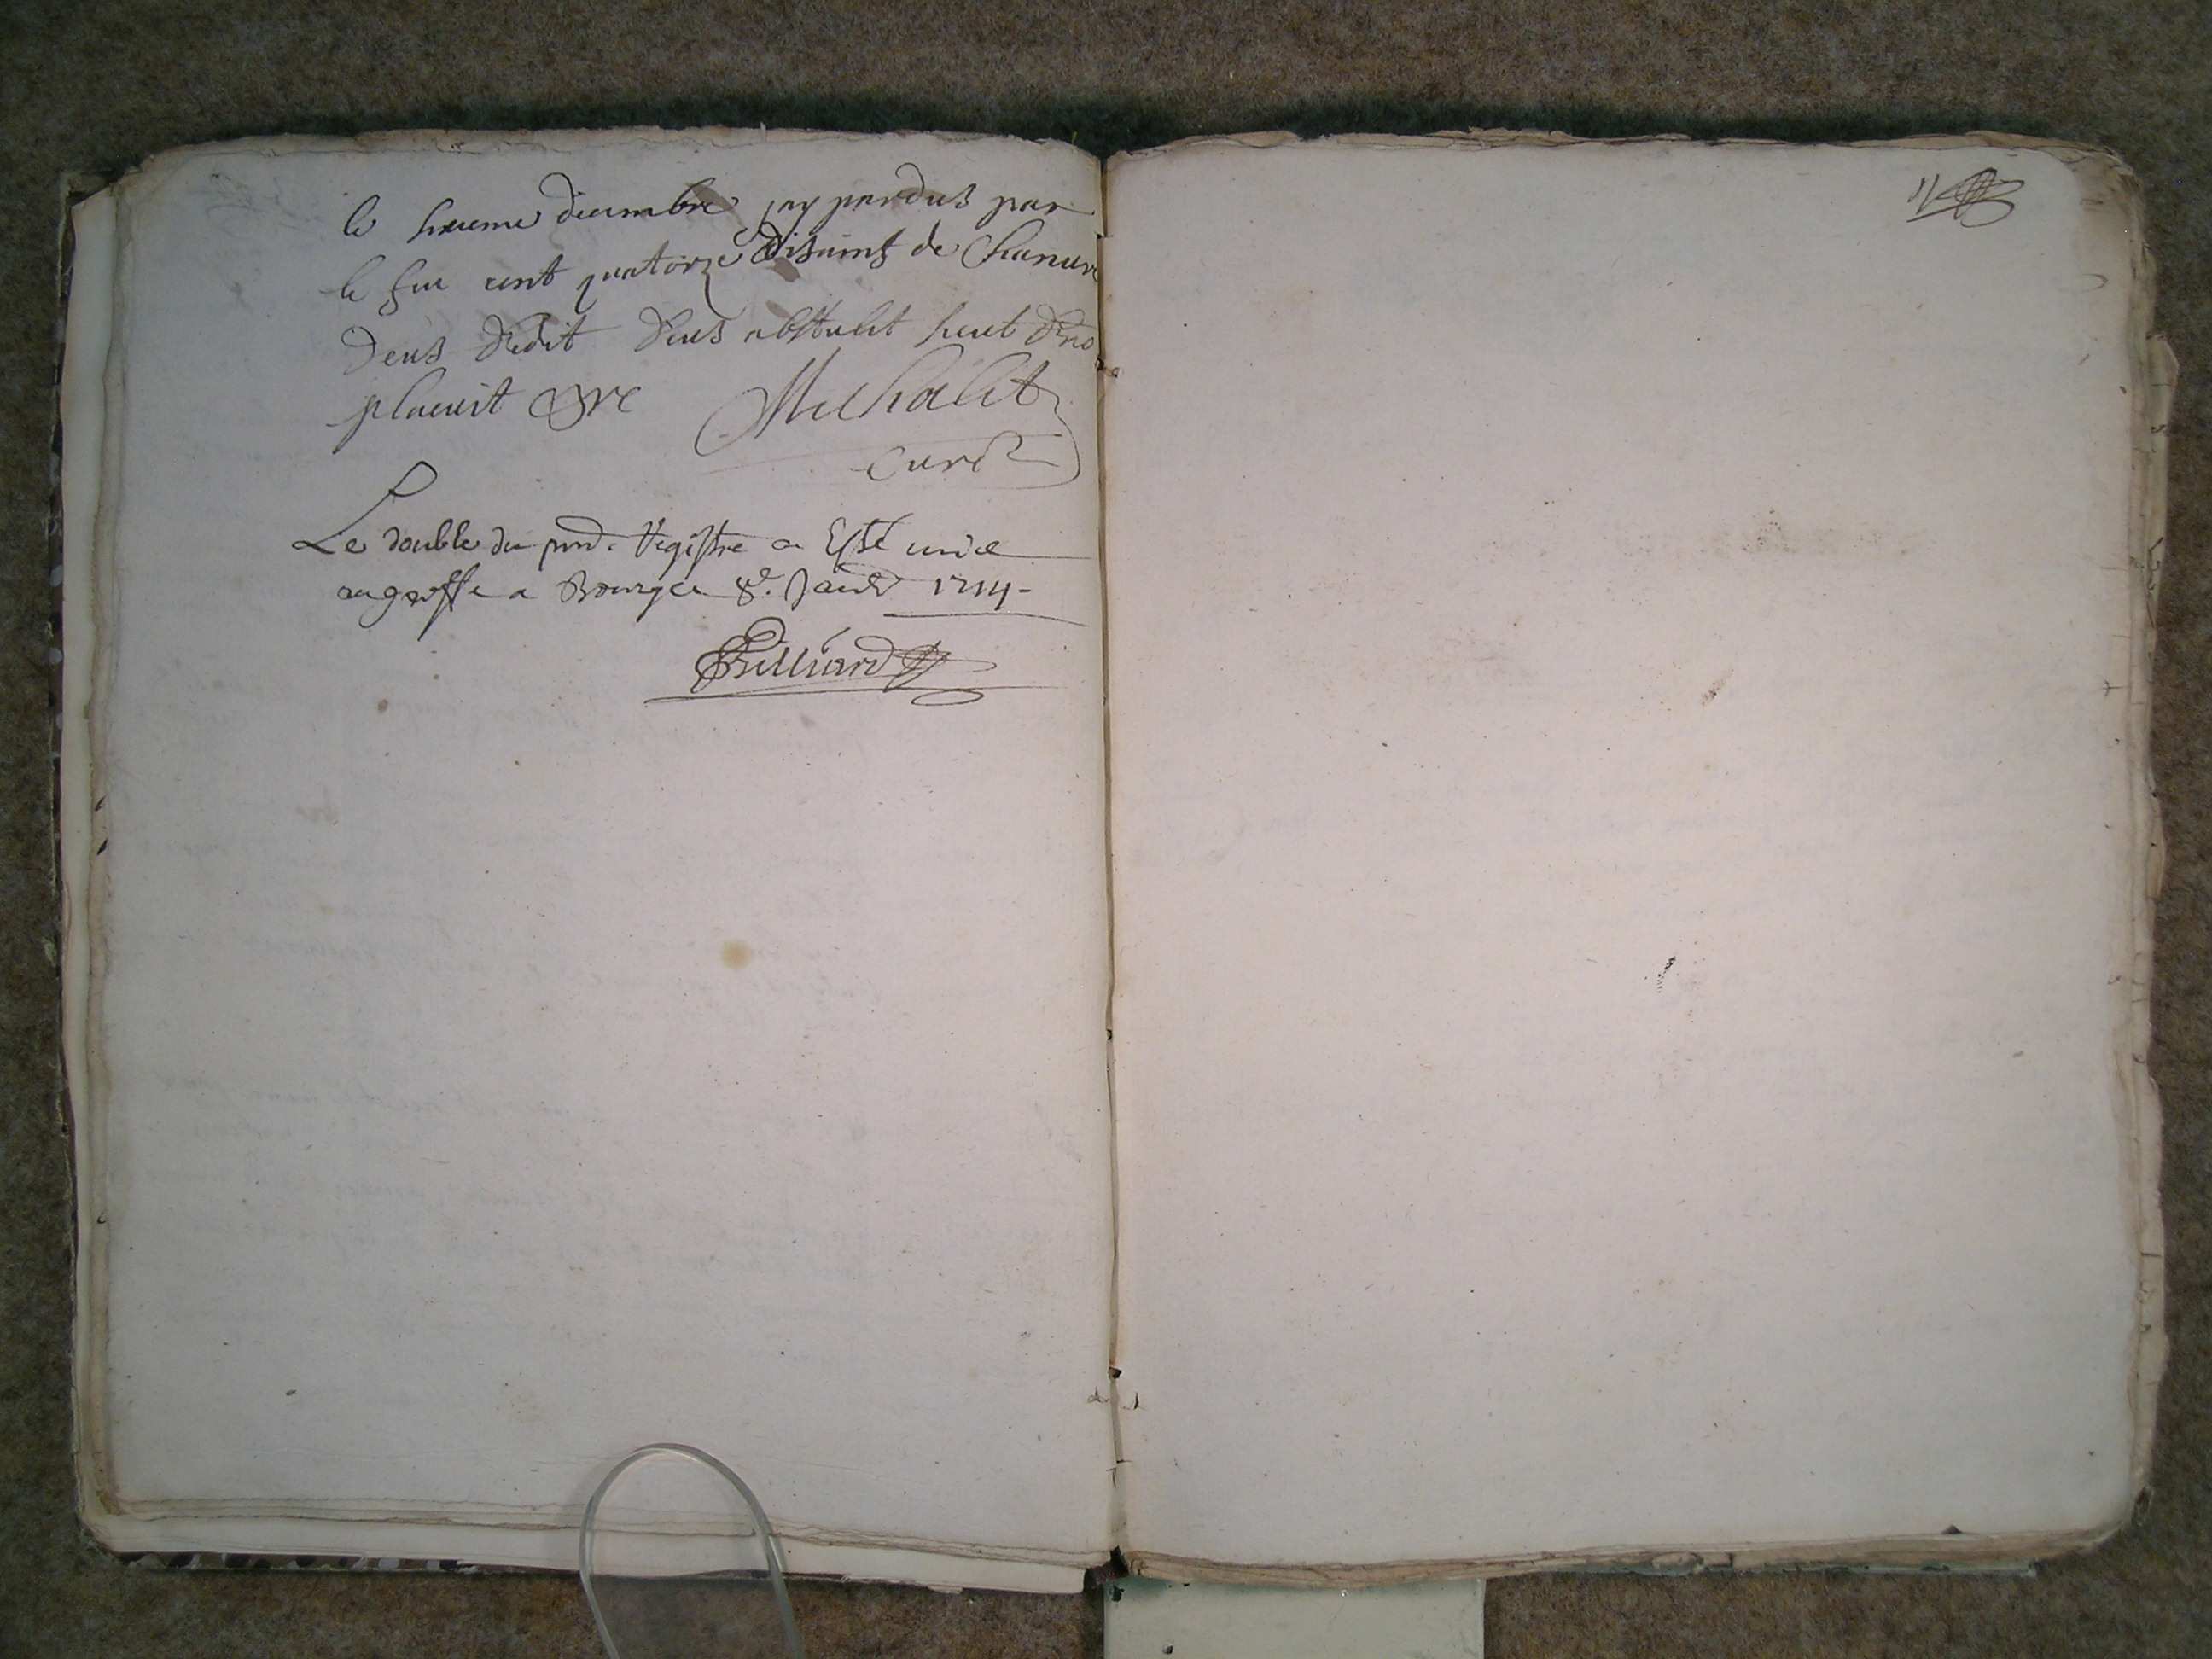 le sixieme decembre jay perdus par
le feu cent quatorze disains de Chanure
Deus dedit Deus abstulit sicut dno
placuit &c Michalet
Curé
Le double du pnd. Registre a Esté mis
au greffe a Bourges 8e. Janv 1714-
Billiard
11